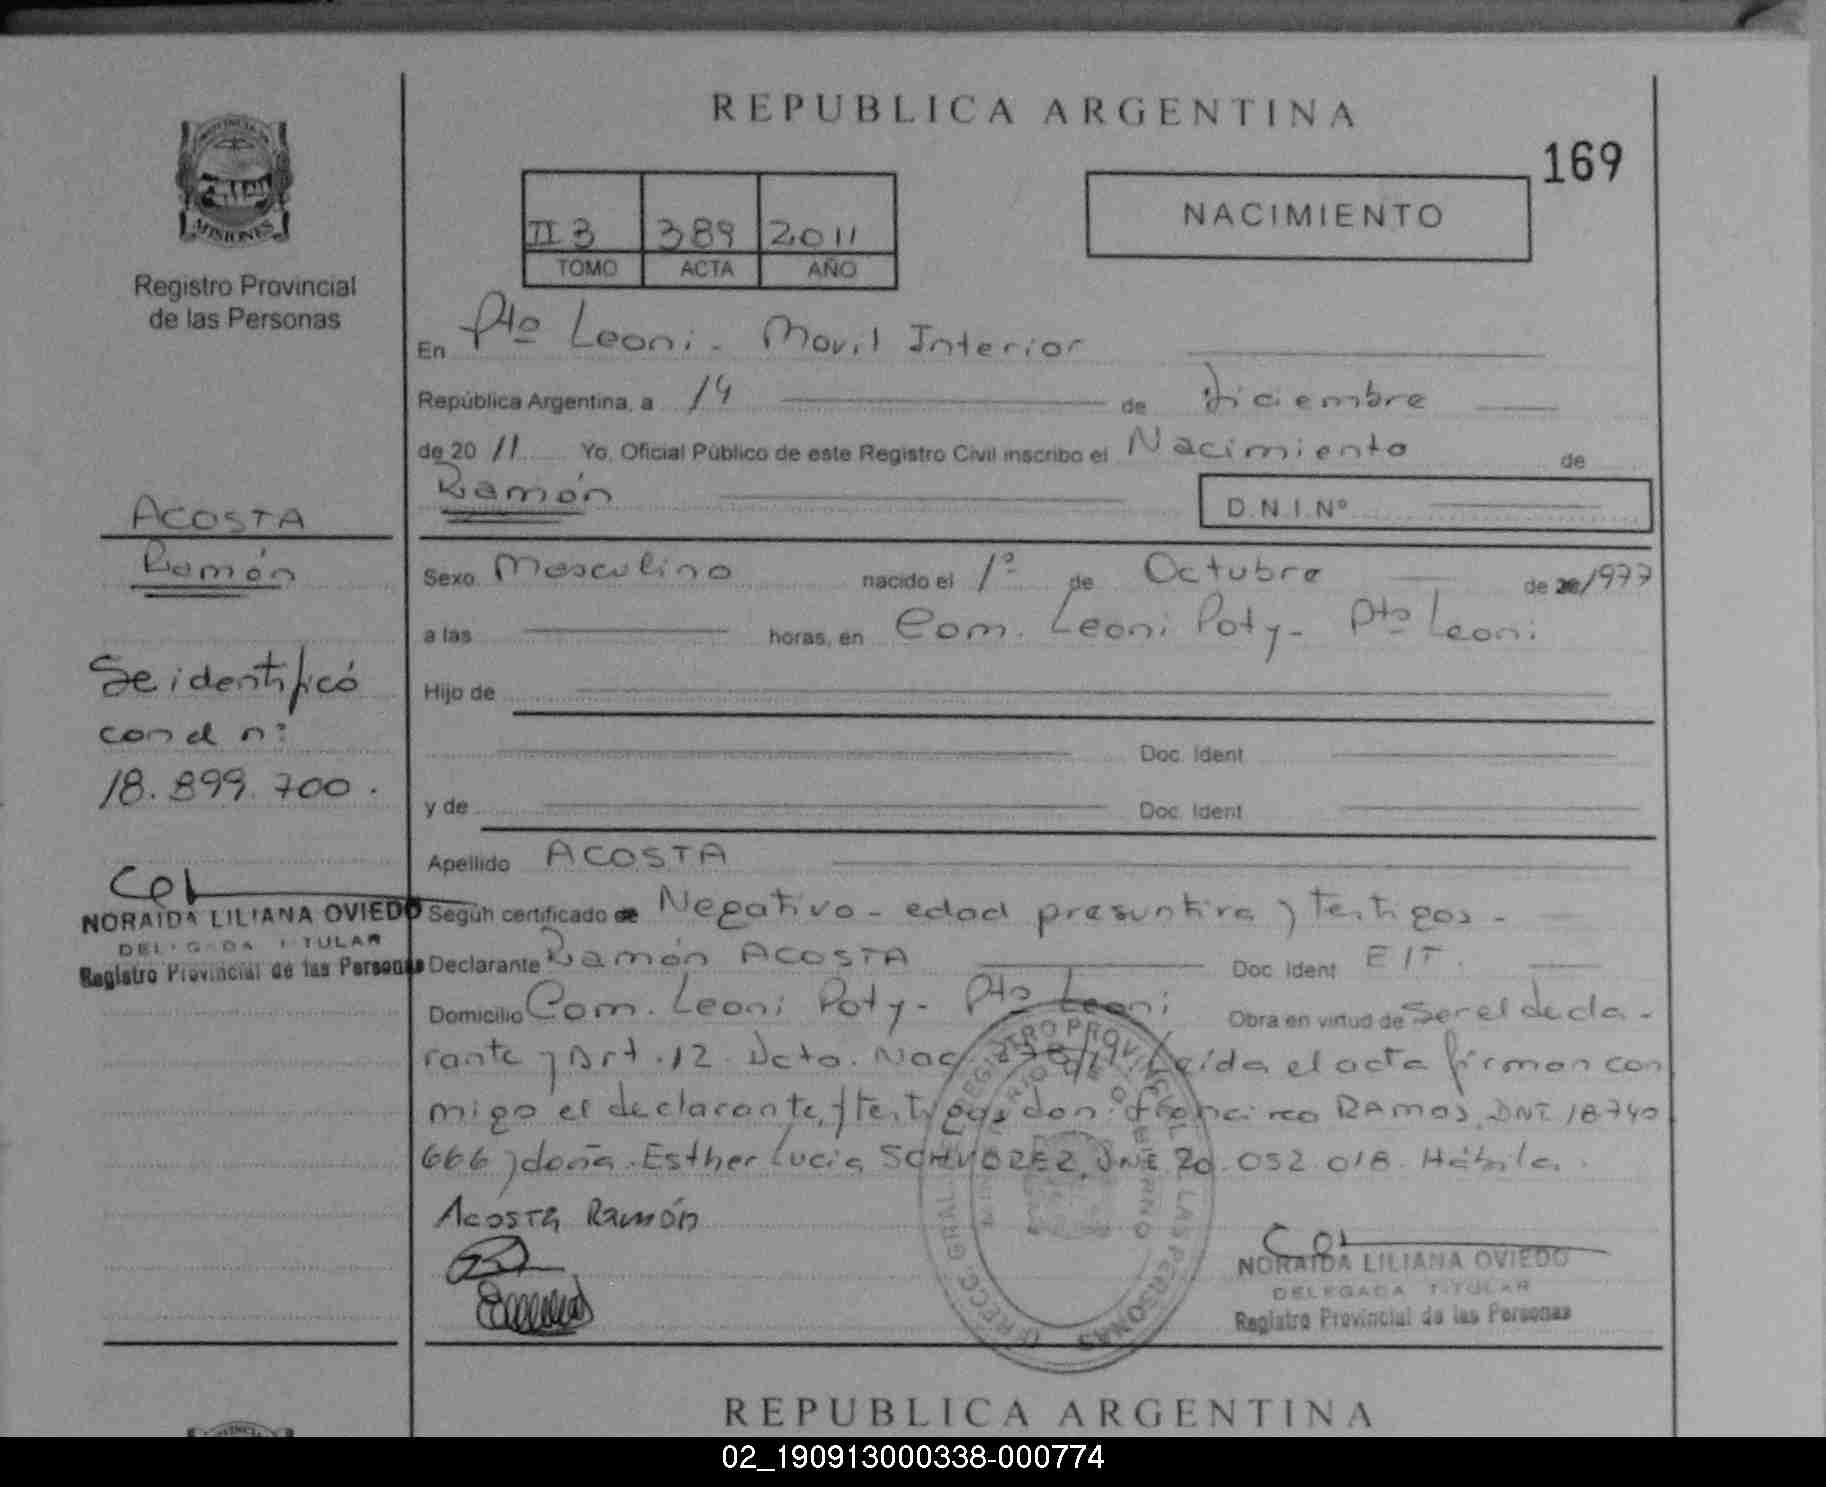 REPUBLICA ARGENTINA
169
PROVINCIA DE
MISIONES
Registro Provincial
de las Personas
II 3 389 2011
TOMO ACTA AÑO
NACIMIENTO
En Pto Leoni - Movil Interior
República Argentina, a 14 de Diciembre
de 20 11 Yo, Oficial Público de este Registro Civil inscribo el Nacimiento de
Ramón D.N.I.Nº
ACOSTA
Ramón
Se identificó
con d nº
18.899.700.
NORAIDA LILIANA OVIEDO
DELEGADA TITULAR
Registro Provincial de las Personas
Sexo Masculino nacido el 1º de Octubre de 20 1977
a las horas, en Com. Leoni Poty - Pto Leoni
Hijo de
Doc. Ident
y de Doc. Ident
Apellido ACOSTA
Según certificado de Negativo - edad presuntiva y testigos -
Declarante Ramón ACOSTA Doc. Ident E/T.
Domicilio Com. Leoni Poty - Pto Leoni Obra en virtud de Ser el decla-
rante y Art. 12 Dcto. Nac Leída el acta firman con
migo el declarante, y testigos don: Francisco RAMOS, DNI 18740
666 y doña Esther Lucia DNI 20.052.018. Hábiles.
Acosta Ramón
NORAIDA LILIANA OVIEDO
DELEGADA TITULAR
Registro Provincial de las Personas
DIRECC. GRAL. DE REGISTRO PROVINCIAL DE LAS PERSONAS
MINISTERIO DE GOBIERNO
REPUBLICA ARGENTINA
02_190913000338-000774